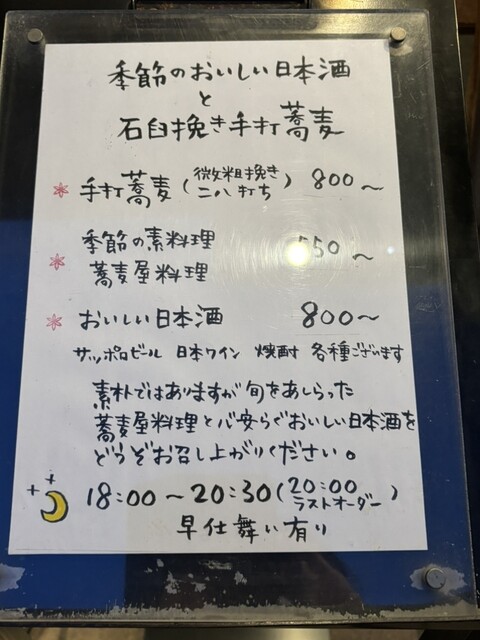 季節のおいしい日本酒
と
石臼挽き手打蕎麦
手打蕎麦(微粗挽き 二八打ち) 800〜
季節の素料理
蕎麦屋料理 550〜
おいしい日本酒 800〜
サッポロビール 日本ワイン 焼酎 各種ございます
素朴ではありますが旬をあしらった
蕎麦屋料理と心安らぐおいしい日本酒を
どうぞお召し上がりください。
18:00〜20:30(20:00 ラストオーダー)
早仕舞い有り